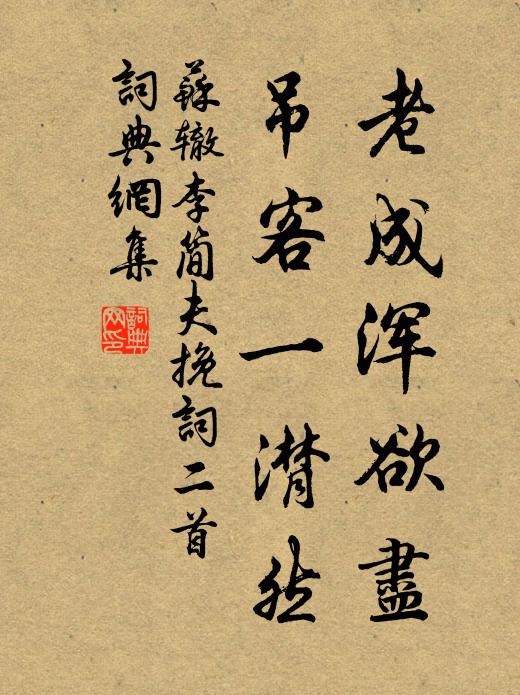 老成浑欲盡
吊客一潸然
蘇辙李简夫挽詞二首
詞典網集
詞典网印